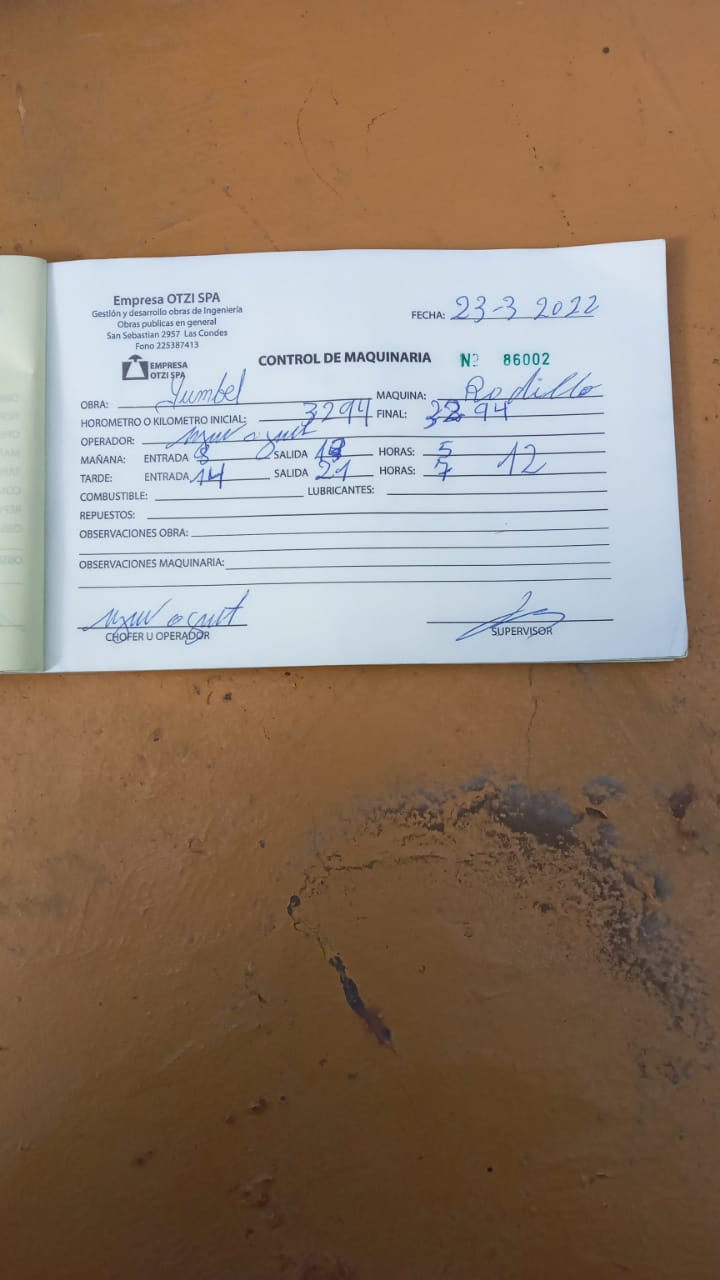 Empresa OTZI SPA
Gestión y desarrollo obras de Ingeniería
Obras publicas en general
San Sebastian 2957 Las Condes
Fono 225387413
FECHA: 23-3 2022
EMPRESA
OTZI SPA
CONTROL DE MAQUINARIA Nº 86002
OBRA: Yumbel MAQUINA: Rodillo
HOROMETRO O KILOMETRO INICIAL: 3294 FINAL: 3294
OPERADOR:
MAÑANA: ENTRADA 8 SALIDA 13 HORAS: 5 12
TARDE: ENTRADA 14 SALIDA 21 HORAS: 7
COMBUSTIBLE: LUBRICANTES:
REPUESTOS:
OBSERVACIONES OBRA:
OBSERVACIONES MAQUINARIA:
CHOFER U OPERADOR SUPERVISOR